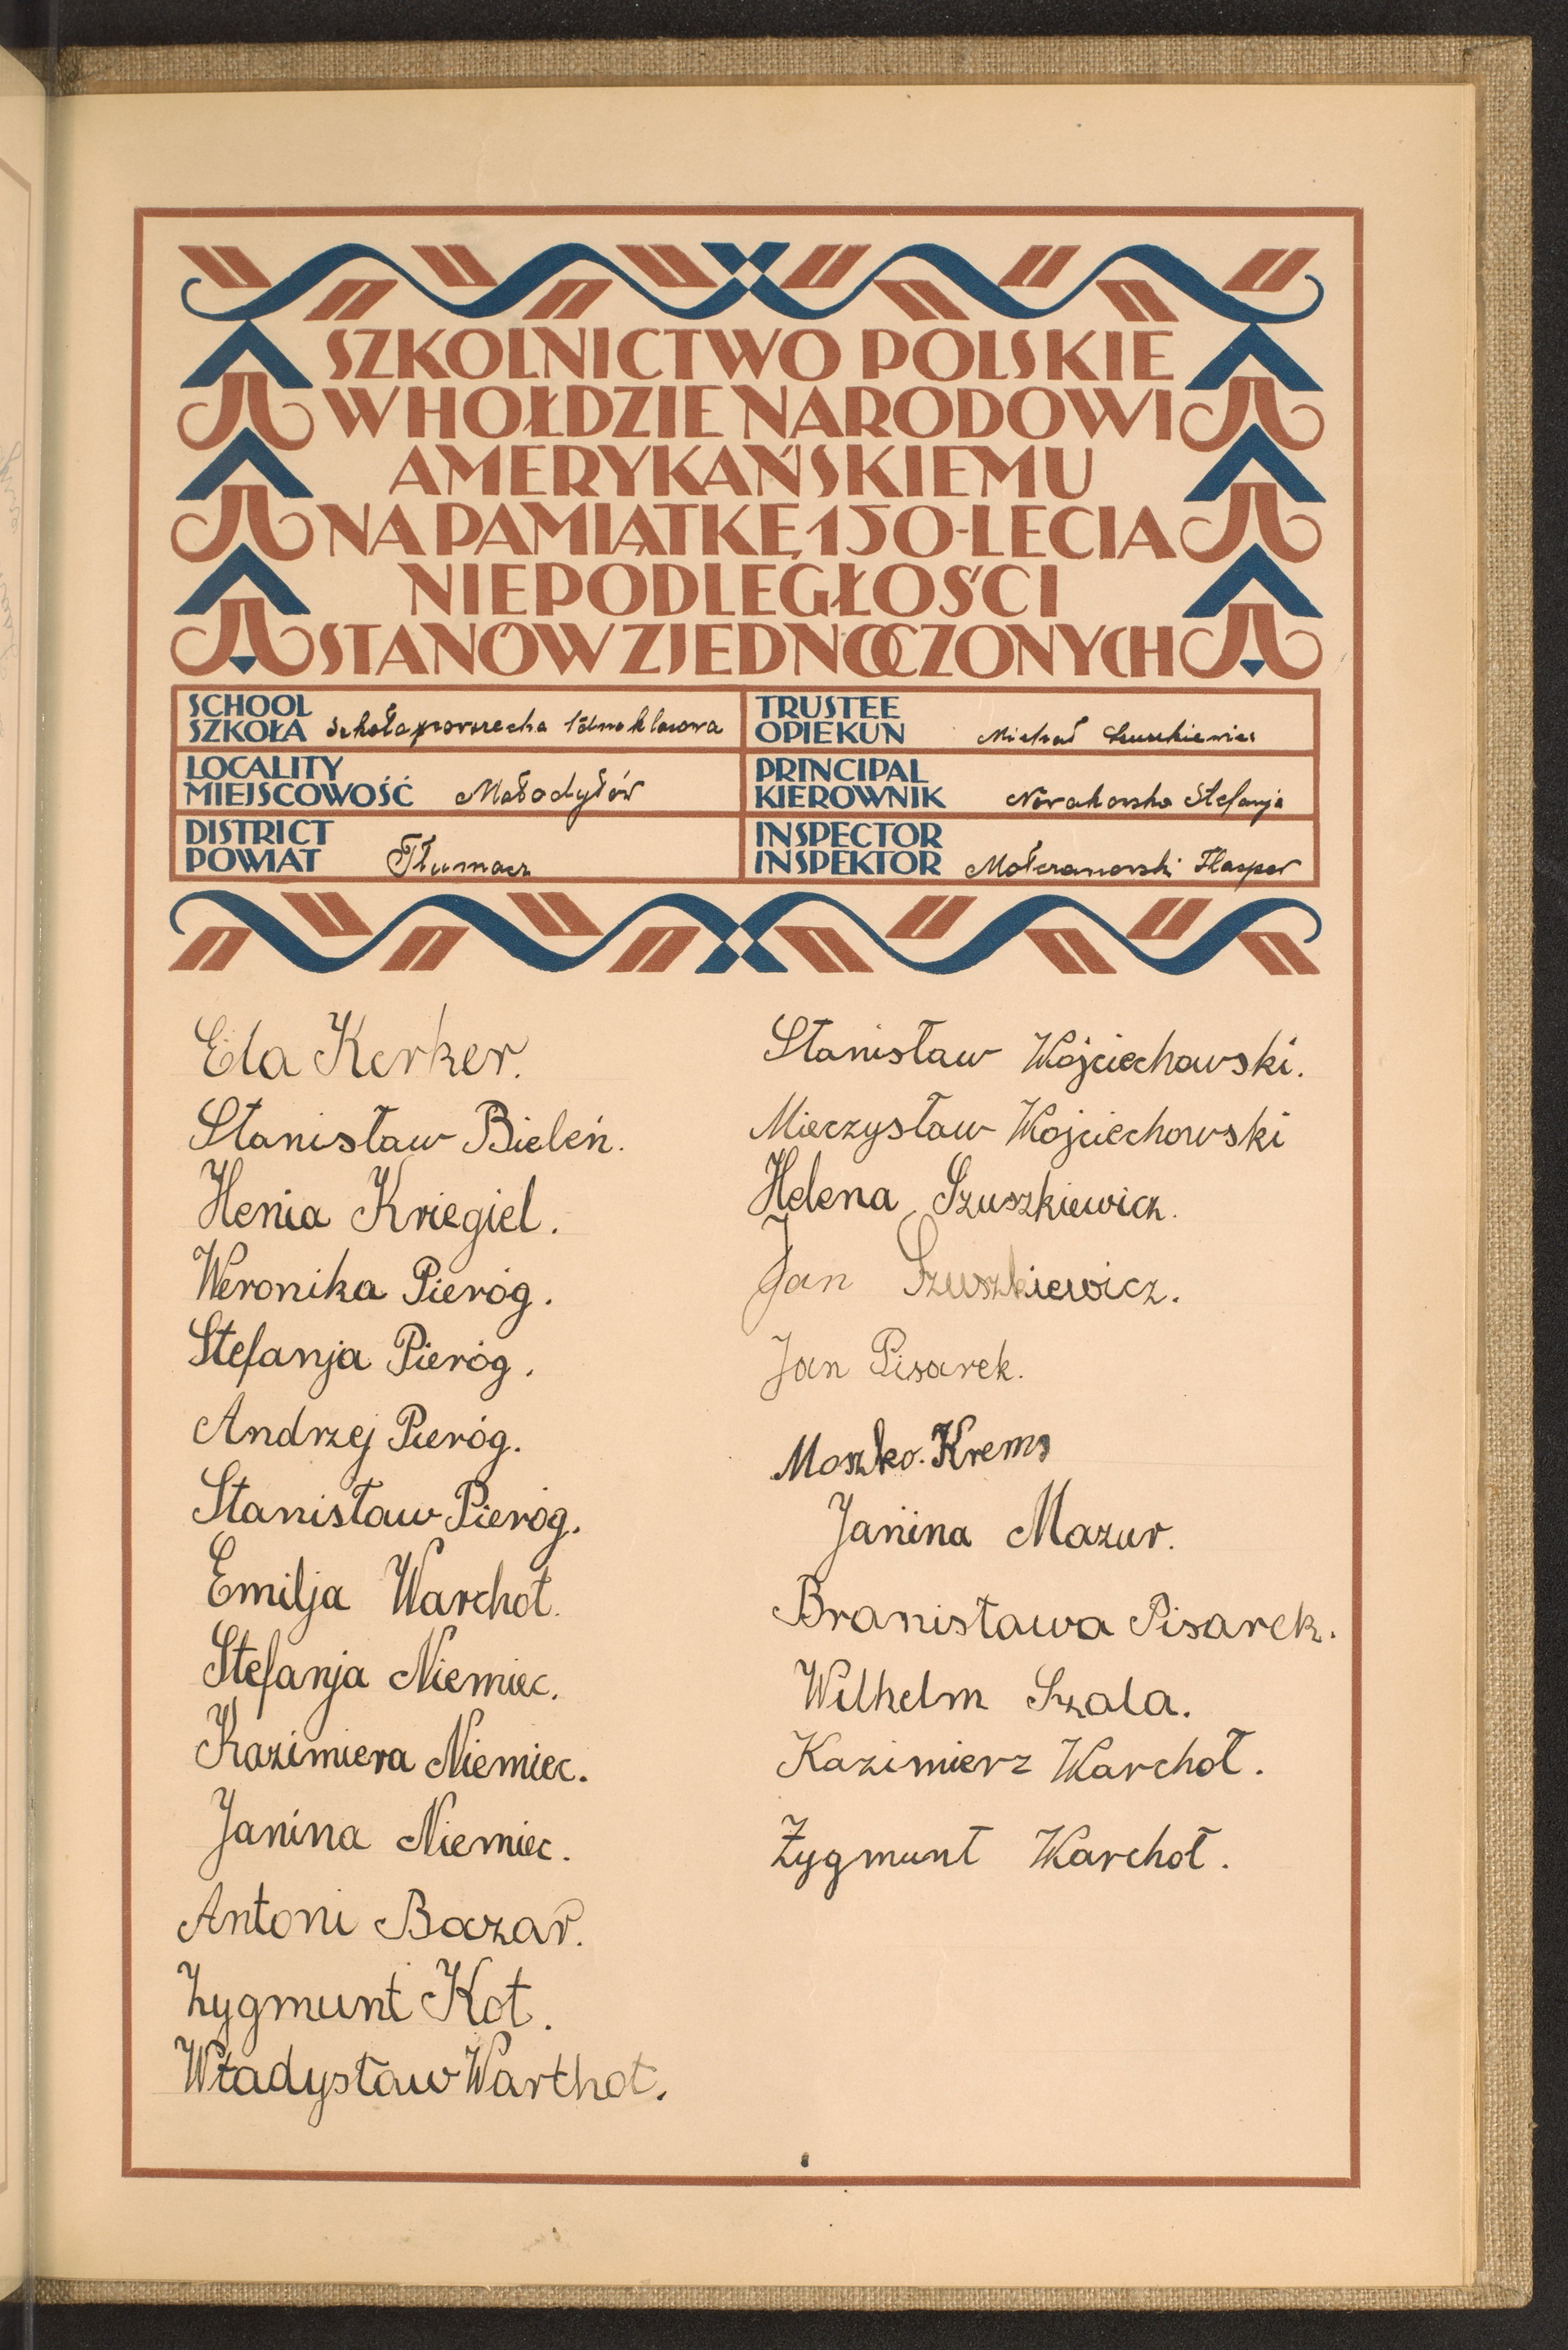 SZKOLNICTWO POLSKIE
W HOŁDZIE NARODOWI
AMERYKAŃSKIEMU
NA PAMIĄTKĘ 150-LECIA
NIEPODLEGŁOŚCI
STANÓW ZJEDNOCZONYCH
SCHOOL
SZKOŁA Szkoła powszechna 1dnoklasowa
TRUSTEE
OPIEKUN Michał
LOCALITY
MIEJSCOWOŚĆ Małodyłów
PRINCIPAL
KIEROWNIK Nowakowska Stefanja
DISTRICT
POWIAT Tłumacz
INSPECTOR
INSPEKTOR Mołczanowski
Eda Kerker.
Stanisław Bieleń.
Henia Kriegiel.
Weronika Pieróg.
Stefanja Pieróg.
Andrzej Pieróg.
Stanisław Pieróg.
Emilja Warchoł.
Stefanja Niemiec.
Kazimiera Niemiec.
Janina Niemiec.
Antoni Bazar.
Zygmunt Kot.
Władysław Warchoł.
Stanisław Wojciechowski.
Mieczysław Wojciechowski
Helena Szuszkiewicz.
Jan Szuszkiewicz.
Jan Pisarek.
Moszko Krems
Janina Mazur.
Branisława Pisarek.
Wilhelm Szala.
Kazimierz Warchoł.
Zygmunt Warchoł.